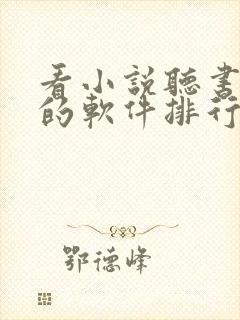 看小説聽書
的軟件排行
鄂德峰